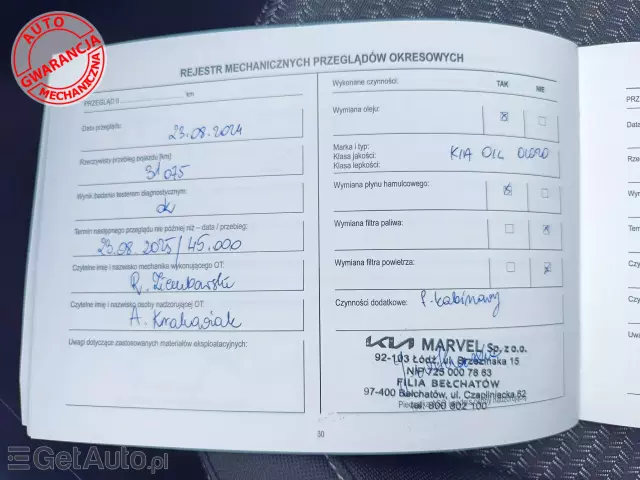 AUTO
GWARANCJA
MECHANICZNA
REJESTR MECHANICZNYCH PRZEGLĄDÓW OKRESOWYCH
PRZEGLĄD II km
Data przeglądu:
23.08.2024
Rzeczywisty przebieg pojazdu [km]
31 075
Wynik badania testerem diagnostycznym:
ok
Termin następnego przeglądu nie później niż – data / przebieg:
23.08.2025/45.000
Czytelne imię i nazwisko mechanika wykonującego OT:
R. Ziembarski
Czytelne imię i nazwisko osoby nadzorującej OT:
A.
Uwagi dotyczące zastosowanych materiałów eksploatacyjnych:
Wykonane czynności:
TAK
NIE
Wymiana oleju:
Marka i typ:
Klasa jakości:
Klasa lepkości:
KIA OIL 0W20
Wymiana płynu hamulcowego:
Wymiana filtra paliwa:
Wymiana filtra powietrza:
Czynności dodatkowe:
f. kabinowy
KIA MARVEL Sp. z o.o.
92-103 Łódź, ul. Brzezińska 15
NIP 725 000 78 63
FILIA BEŁCHATÓW
97-400 Bełchatów, ul. Czapliniecka 62
tel. 600 802 100
30
PRZ
Data
Rze
Wyn
Term
Czyt
Czyt
Uwag
GetAuto.pl